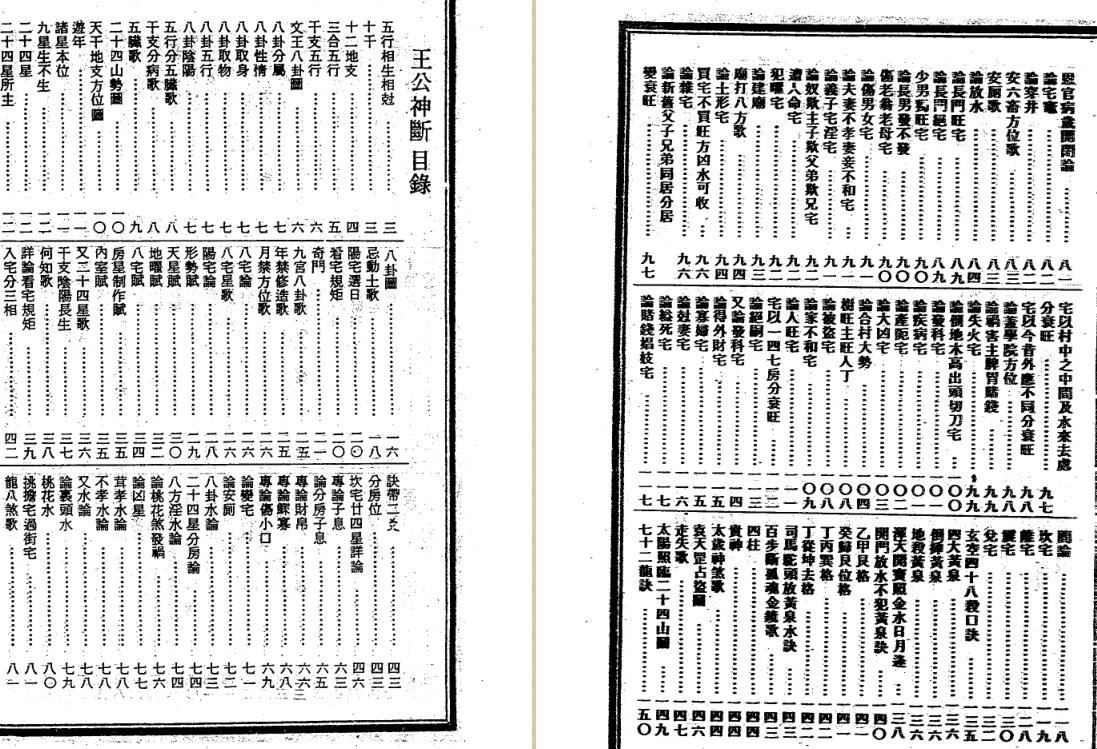 王公神斷 目錄
五行相生相尅……三
十干……三
十二地支……四
三合五行……五
干支五行……六
文王八卦圖……六
八卦分屬……七
八卦性情……七
八卦取身……七
八卦取物……七
八卦五行……七
八卦陰陽……八
五行分五臟歌……八
干支分病歌……八
五臟歌……九
二十四山勢圖……一〇
天干地支方位圖……一〇
遊年……一一
諸星本位……一一
九星生不生……一二
二十四星……一二
二十四星所主……一二
八卦圖……一六
忌動土歌……一八
陽宅選日……二〇
看宅規矩……二〇
奇門……二一
九宮八卦歌……二五
年禁修造歌……二五
月禁方位歌……二六
八宅論……二六
八宅星歌……二六
陽宅論……二八
形勢賦……二九
天星賦……三〇
地曜賦……三二
八宅賦……三四
房星制作賦……三五
內室賦……三五
又二十四星歌……三六
干支陰陽長生……三七
何知歌……三八
詳論看宅規矩……三九
入宅分三相……四二
訣帶二爻……四三
分房位……四三
坎宅廿四星詳論……四六
專論子息……六三
論分房子息……六五
專論財帛……六六
專論鰥寡……六八
專論傷小口……六九
論變宅……七一
論安厠……七二
八卦水論……七三
二十四星分房論……七四
八方淫水論……七四
論桃花煞發禍……七六
論凶星……七七
茸孝水論……七八
不孝水論……七八
又水論……七八
論裏頭水……七九
桃花水……八〇
挑擔宅過街宅……八一
龍八煞歌……八一
恩官病歲開閉論……八一
論宅竈……八二
論穿井……八二
安六畜方位歌……八三
安厠歌……八三
論放水……八四
論長門旺宅……八九
論長門絕宅……八九
少男獨旺宅……九〇
論長男發不發……九〇
傷老翁老母宅……九〇
論傷男女宅……九一
論夫妻不孝妻妾不和宅……九一
論義子宅淫宅……九一
論奴欺主子欺父弟欺兄宅……九二
遭人命宅……九二
犯曜宅……九二
論建廟……九三
廟打八方歌……九四
論土形宅……九四
買宅不買旺方凶水可收……九六
論雜宅……九六
論新舊父子兄弟同居分居
變衰旺……九七
宅以村中之中間及水來去處
分衰旺……九七
宅以今昔外應不同分衰旺……九八
論蓋學院方位……九八
論禍害主脾胃賭錢……九九
論失火宅……九九
論倒地木高出頭切刀宅……一〇〇
論發科宅……一〇一
論疾病宅……一〇一
論產阨宅……一〇二
論大凶宅……一〇三
論合村大勢……一〇四
樹旺主旺人丁……一〇八
論被盜宅……一〇八
論家不和宅……一〇九
論人旺宅……一一一
宅以一四七房分衰旺……一一二
論絕嗣宅……一一三
又論發科宅……一一四
論得外財宅……一一五
論寡婦宅……一一五
論尅妻宅……一一六
論縊死宅……一一七
論賭錢娼妓宅……一一七
間論……一一八
坎宅……一一九
離宅……一二八
震宅……一三〇
兌宅……一三二
玄空四十八殺口訣……一三五
四大黃泉……一三六
倒排黃泉……一三六
地殺黃泉……一三六
渾天開寶照金水日月逢……一三八
開門放水不犯黃泉訣……一四〇
乙甲艮格……一四一
癸歸艮位格……一四一
丁丙巽格……一四二
丁從坤去格……一四二
司馬駝頭放黃泉水訣……一四三
百步斷孤魂金鏡歌……一四三
四柱……一四四
貴神……一四四
太歲神煞歌……一四四
袁天罡占盜圖……一四五
走失歌……一四七
太陽照臨二十四山圖……一四九
七十二龍訣……一五〇